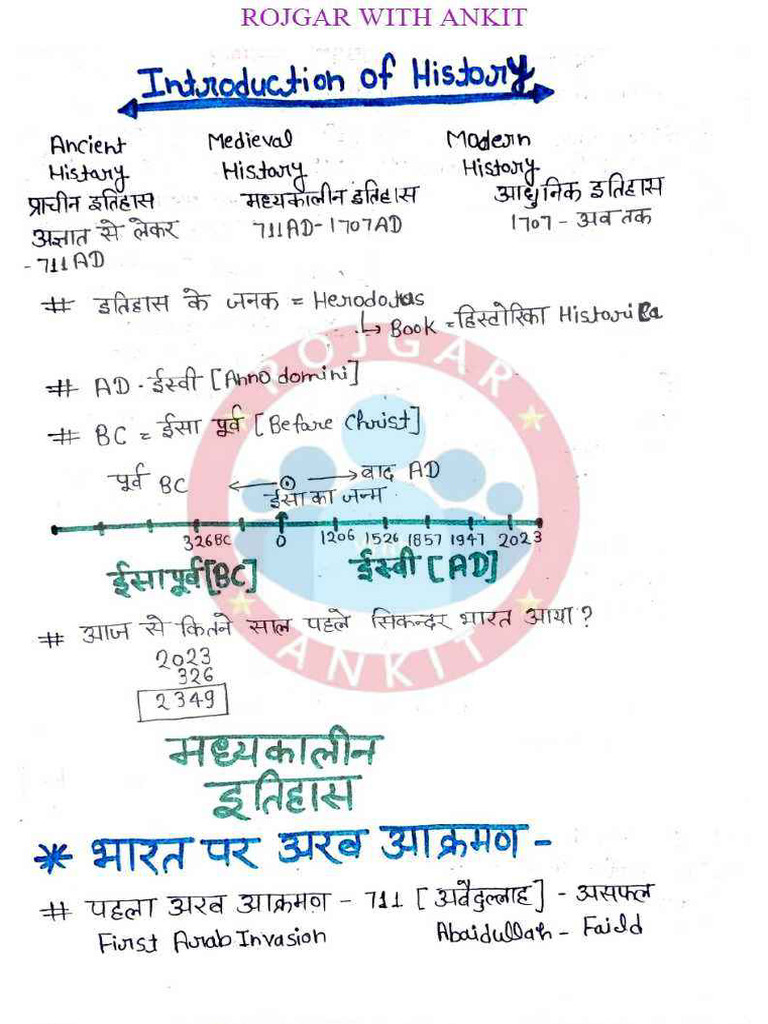 ROJGAR WITH ANKIT
Introduction of History
Ancient Medieval Modern
History History History
प्राचीन इतिहास मध्यकालीन इतिहास आधुनिक इतिहास
अज्ञात से लेकर 711AD-1707AD 1707 - अब तक
- 711AD
# इतिहास के जनक = Herodotus
↳ Book = हिस्टोरिका Historica
# AD - ईस्वी [Anno domini]
# BC = ईसा पूर्व [Before Christ]
पूर्व BC ← ⊙ → बाद AD
ईसा का जन्म
326BC 0 1206 1526 1857 1947 2023
ईसापूर्व [BC] ईस्वी [AD]
# आज से कितने साल पहले सिकन्दर भारत आया?
2023
326
2349
मध्यकालीन
इतिहास
* भारत पर अरब आक्रमण -
# पहला अरब आक्रमण - 711 [अवैदुल्लाह] - असफल
First Arab Invasion Abaidullah - Faild
ROJGAR
ANKIT